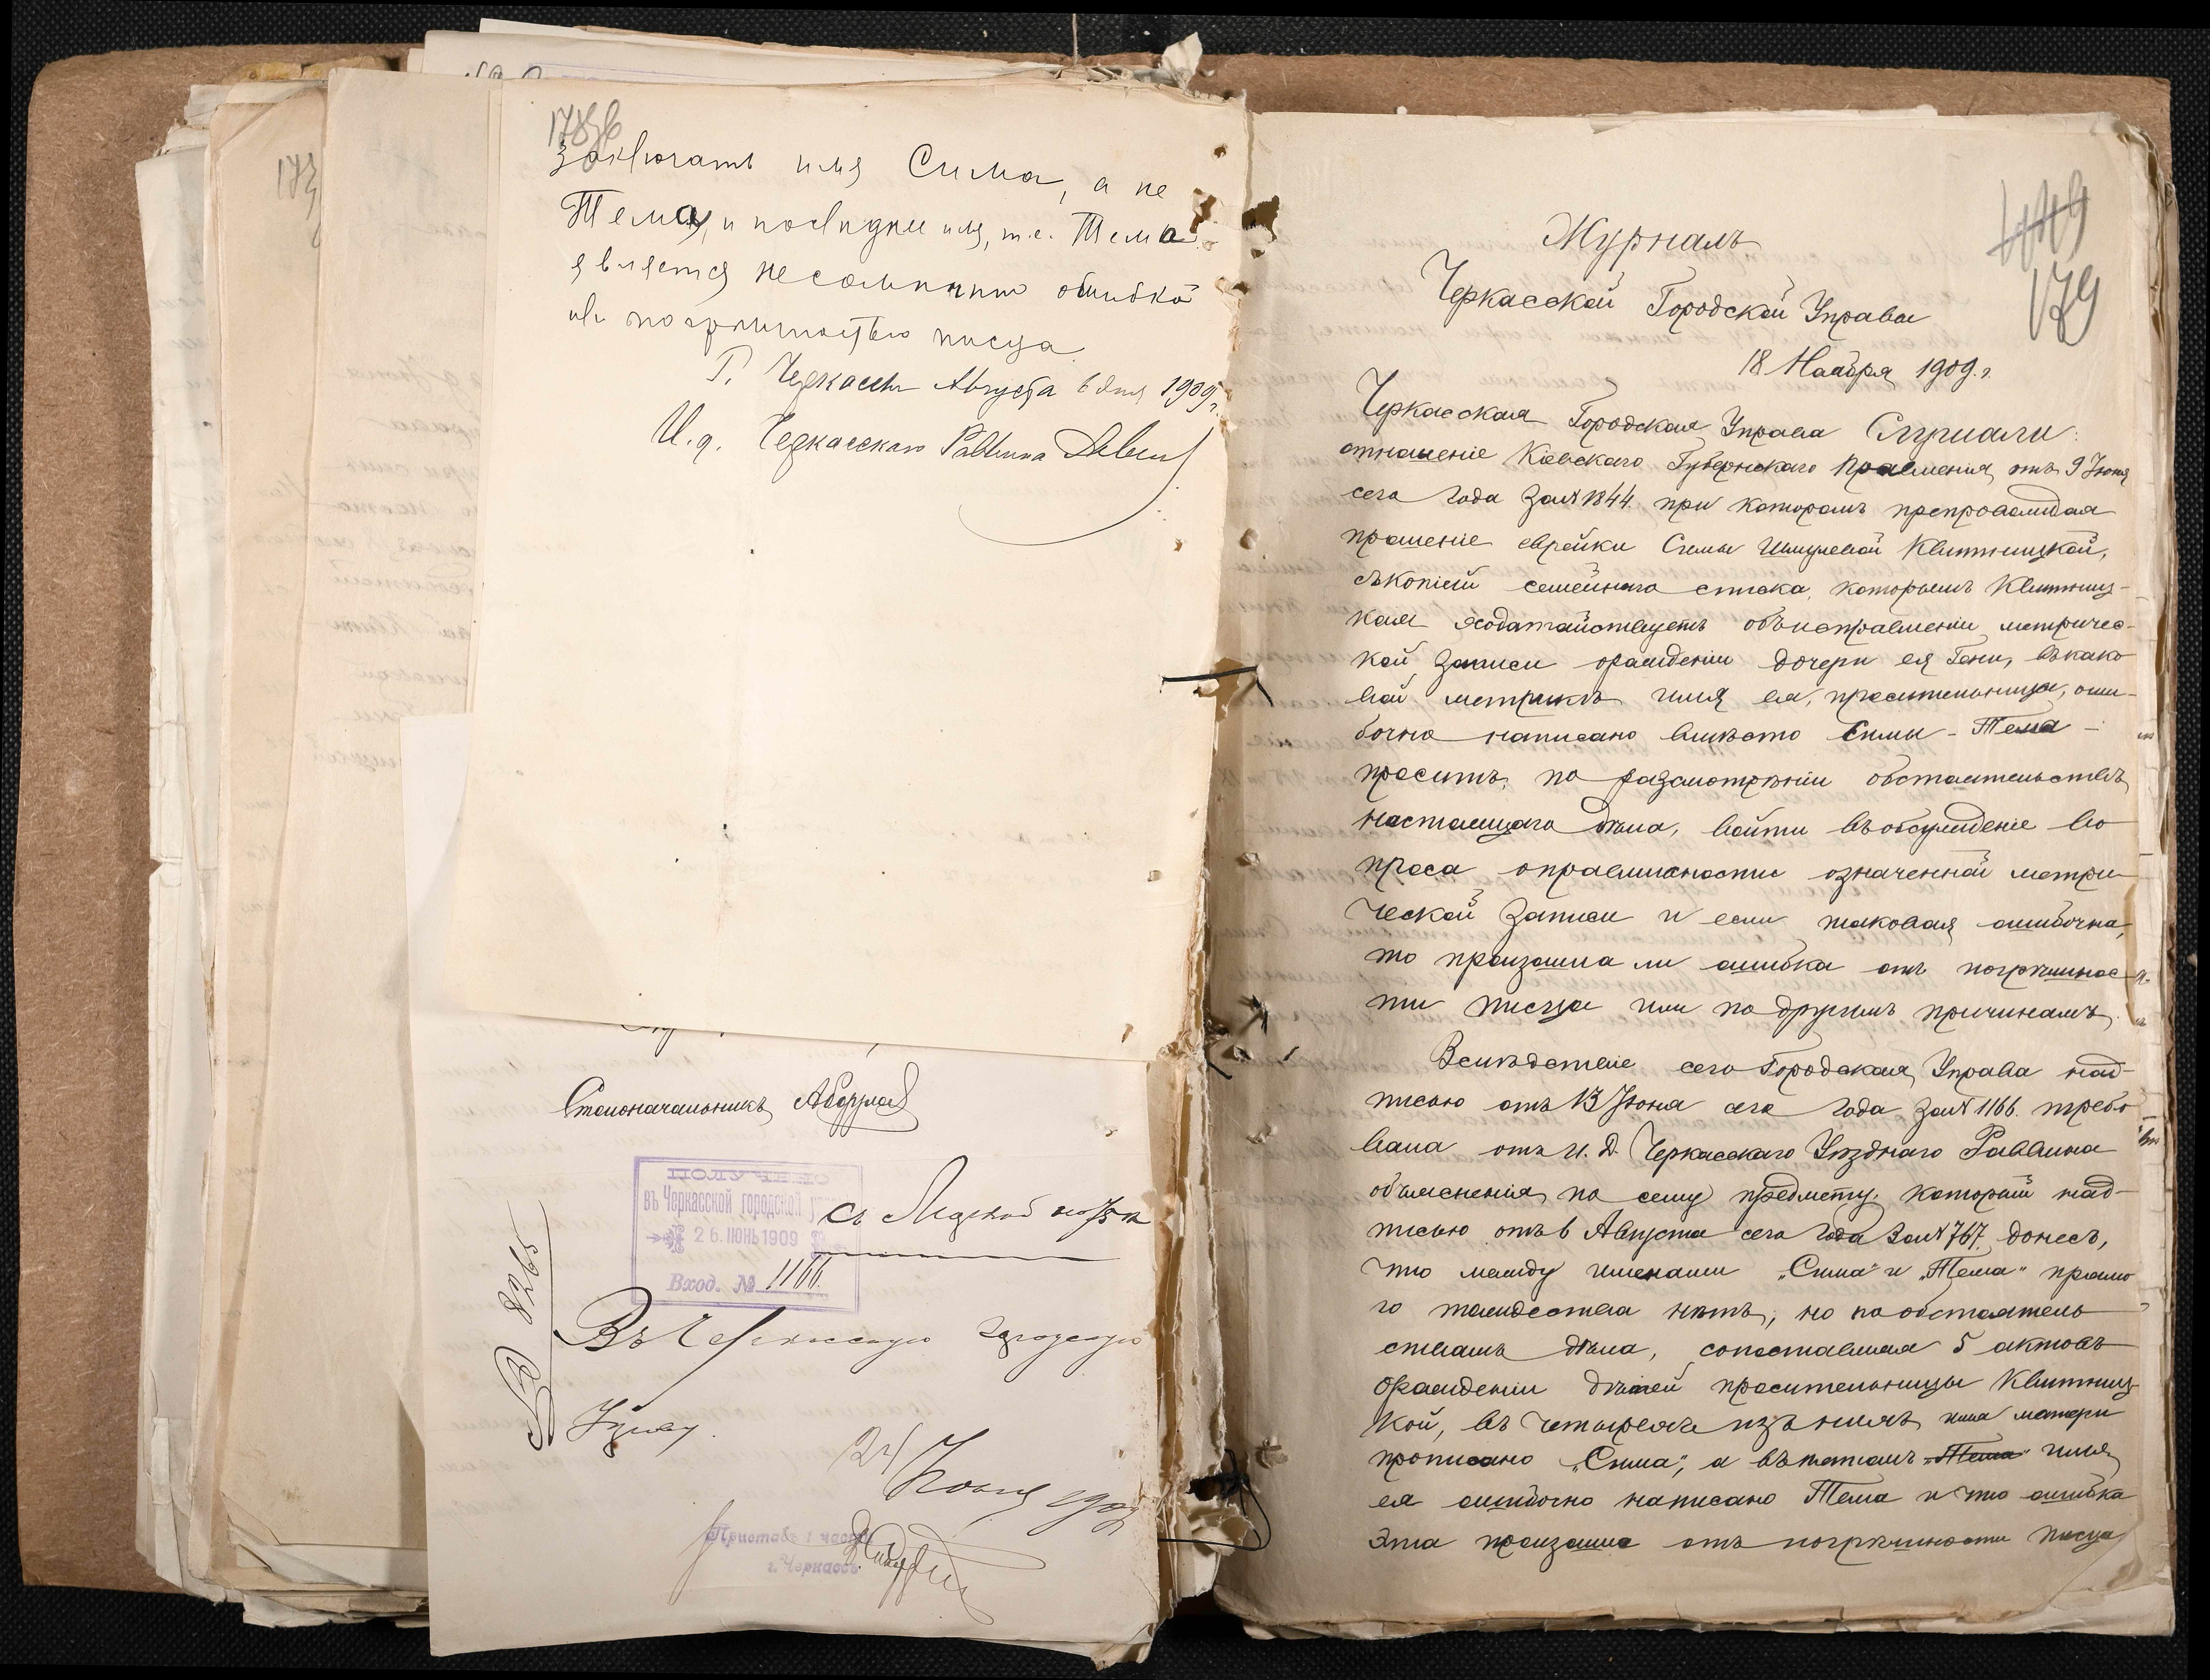 178об
заключать имя Сима, а не
Тема, и последнее имя, т.е. Тема
является несомненно ошибкой
или погрешностью писца.
Г. Черкассы Августа 6 дня 1909 г.
И. д. Черкасского Раввина
Столоначальникъ
ПОЛУЧЕНО
въ Черкасской городской
26 ІЮНЬ 1909
Вход. № 1166
№ 8265
Въ Черкасскую городскую
Управу.
24 Іюня 1909
Приставъ 1 части
г. Черкассъ
179
Журналъ
Черкасской Городской Управы
18 Ноября 1909 г.
Черкасская Городская Управа Слушали:
отношеніе Кіевскаго Губернскаго Правленія отъ 9 Іюня
сего года за № 1844. при которомъ препровождая
прошеніе еврейки Симы Шмулевой Квитницкой,
съ копіей семейнаго списка, которымъ Квитниц-
кая ходатайствуетъ объ исправленіи метричес-
кой записи о рожденіи дочери ея Гени, въ како
вой метрикѣ имя ея, просительницы, оши-
бочно написано вмѣсто Симы - Тема -
проситъ, по разсмотрѣніи обстоятельствъ
настоящаго дѣла, войти въ обсужденіе во
проса о правильности означенной метри
ческой записи и если таковая ошибочна,
то произошла ли ошибка отъ погрѣшнос-
ти писца или по другимъ причинамъ.
Вслѣдствіе сего Городская Управа над-
писью отъ 13 Іюня сего года за № 1166. требо
вала отъ И. Д. Черкасскаго Уѣзднаго Раввина
объясненія по сему предмету, который над-
писью отъ 6 Августа сего года за № 767. донесъ,
что между именами „Сима" и „Тема" прямо
го тождества нѣтъ, но по обстоятель
ствамъ дѣла, сопоставляя 5 актовъ
о рожденіи дѣтей просительницы Квитниц-
кой, въ четырехъ изъ нихъ имя матери
прописано „Сима", а въ пятомъ „Тема" имя
ея ошибочно написано Тема и что ошибка
эта произошла отъ погрѣшности писца